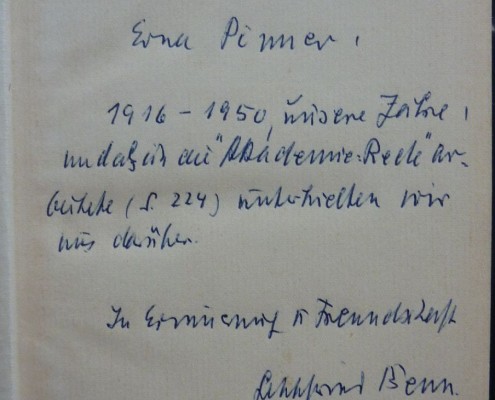 Erna Pinner,
1916 - 1950, unsere Jahre,
und als ich die "Akademie-Rede" ar-
beitete (S. 224) unterhielten wir
uns darüber.
In Erinnerung u Freundschaft
Gottfried Benn.